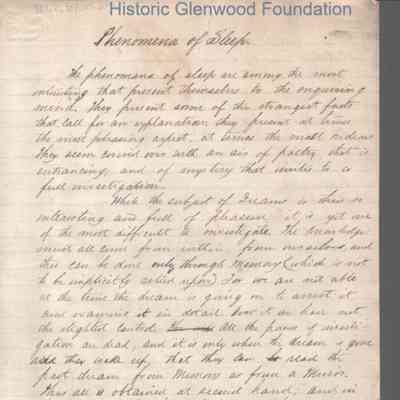 Historic Glenwood Foundation
Phenomena of Sleep.
The phenomena of sleep are among the most
interesting that present themselves to the enquiring
mind. They present some of the strangest facts
that call for an explanation; they present at times
the most pleasing aspect, at times the most hideous
They seem with an air of poetry that is
entrancing, and of mystery that invites to a
full investigation.
While the subject of Dreams is thus so
interesting and full of pleasure it is yet one
of the most difficult to investigate. The knowledge
must all come from within, from ourselves, and
this can be done only through Memory (which is not
to be implicitly relied upon) For we are not able
at the time the dream is going on to arrest it
and examine it in detail. Over it we have not
the slightest control. all the powers of investi-
gation are dead, and it is only when the dream is gone
and they wake up, that they can read the
past dream from Memory as from a Mirror.
This all is obtained at second hand, and in